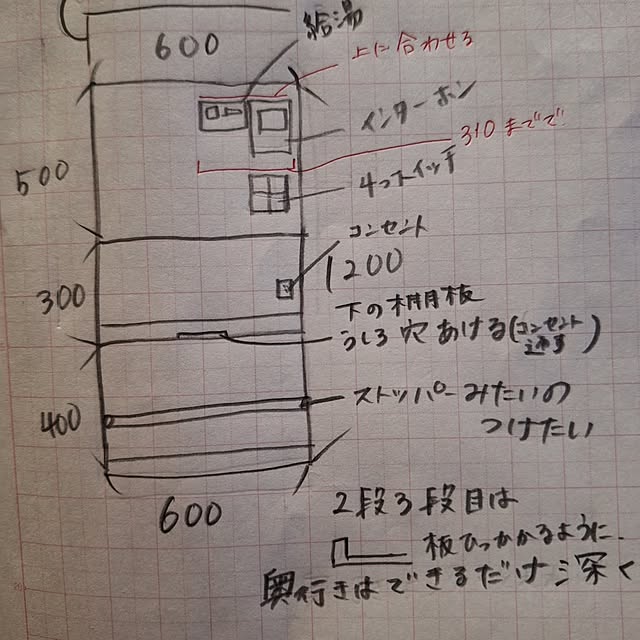 600
給湯
上に合わせる
インターホン
310までで
500
4つスイッチ
コンセント
200
300
下の棚板
うしろ穴あける(コンセント通す)
400
ストッパーみたいの
つけたい
600
2段3段目は
板ひっかかるように.
奥行きはできるだけ深く